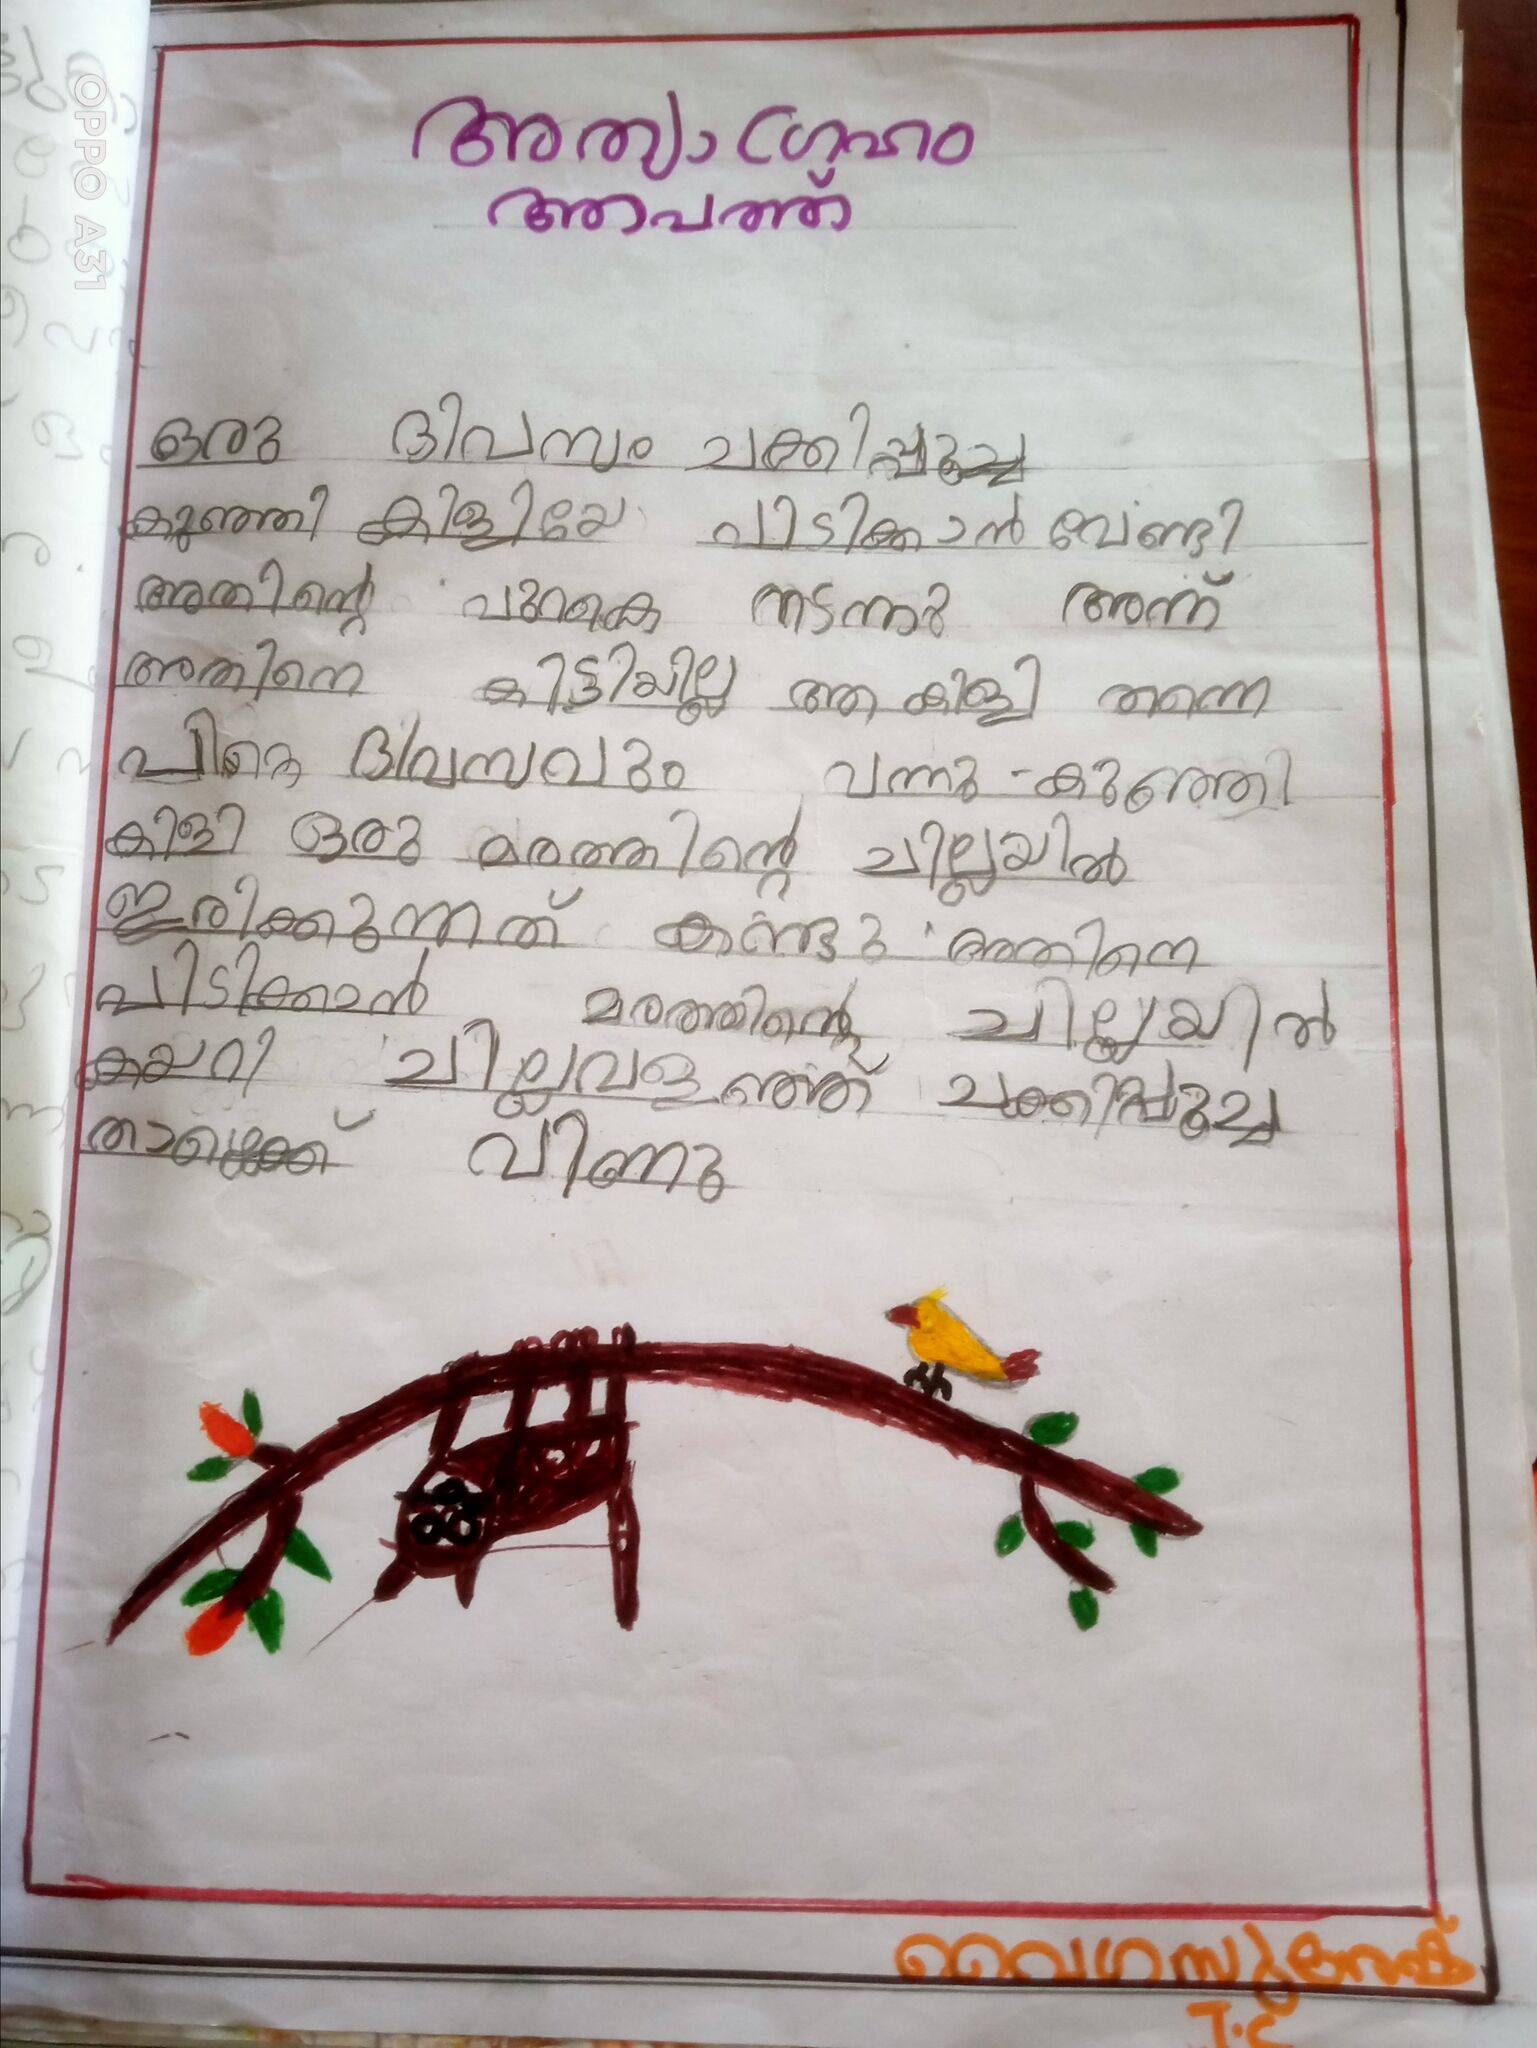 അത്യാഗ്രഹം
ആപത്ത്
ഒരു ദിവസം ചക്കിപ്പൂച്ച
കുഞ്ഞി കിളിയേ പിടിക്കാൻ വേണ്ടി
അതിന്റെ പുറകെ നടന്നു അന്ന്
അതിനെ കിട്ടിയില്ല ആ കിളി തന്നെ
പിറ്റേ ദിവസവും വന്നു കുഞ്ഞി
കിളി ഒരു മരത്തിന്റെ ചില്ലയിൽ
ഇരിക്കുന്നത് കണ്ടു അതിനെ
പിടിക്കാൻ മരത്തിന്റെ ചില്ലയിൽ
കയറി ചില്ലവളഞ്ഞ് ചക്കിപ്പൂച്ച
താഴെക്ക് വീണു
OPPO A31